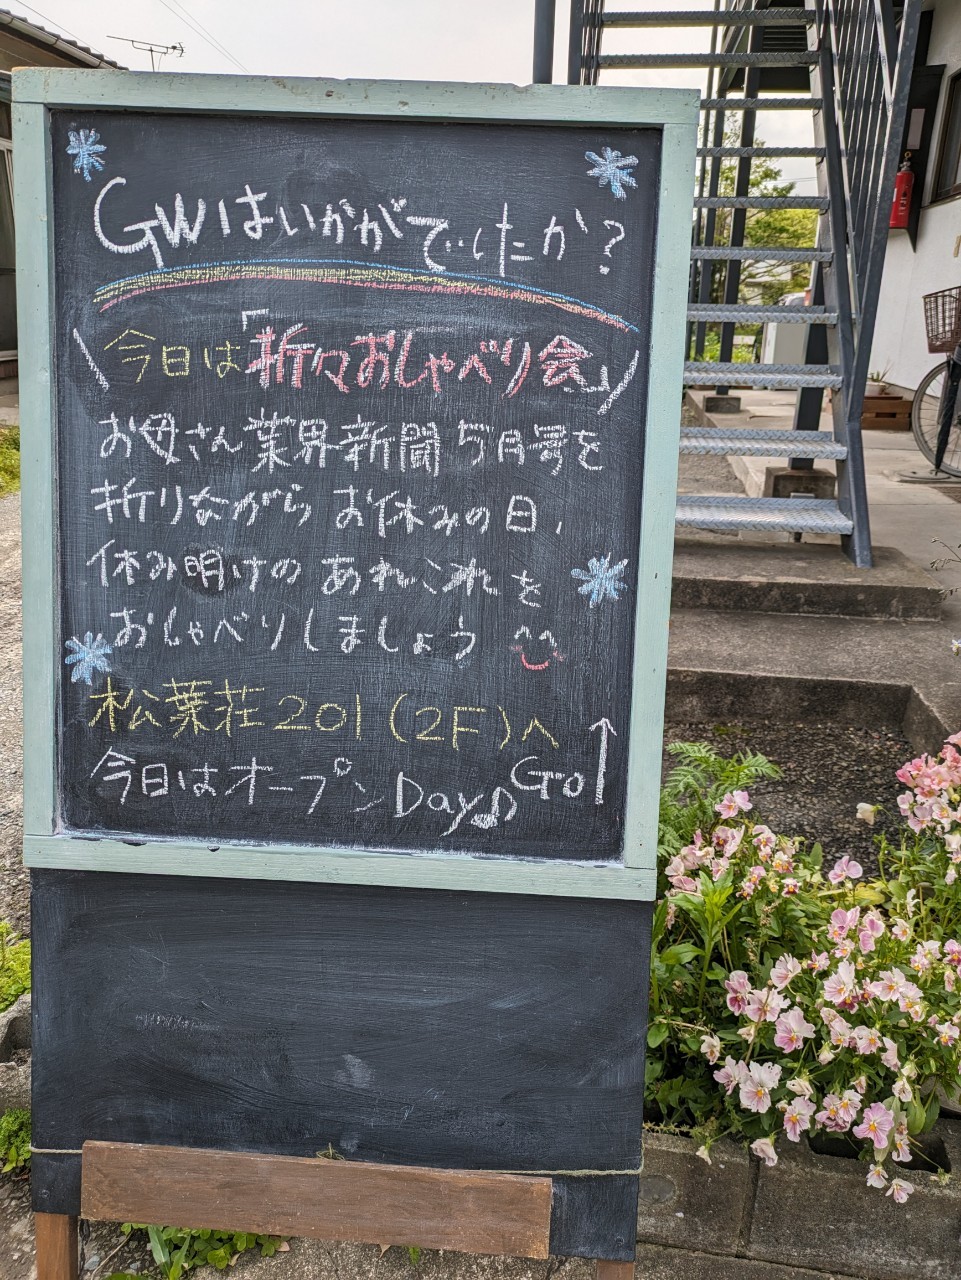 GWはいかがでしたか?
\今日は「折々おしゃべり会」/
お母さん業界新聞5月号を
折りながらお休みの日、
休み明けのあれこれを
おしゃべりしましょう
松葉荘201(2F)へ
今日はオープンDay♫ Go↑